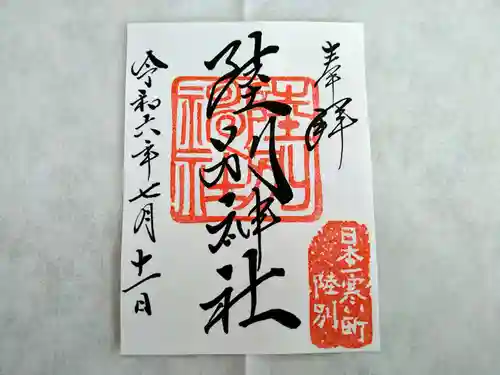 奉拝
陸別神社
令和六年七月十一日
陸別神社
日本一寒い町
陸別